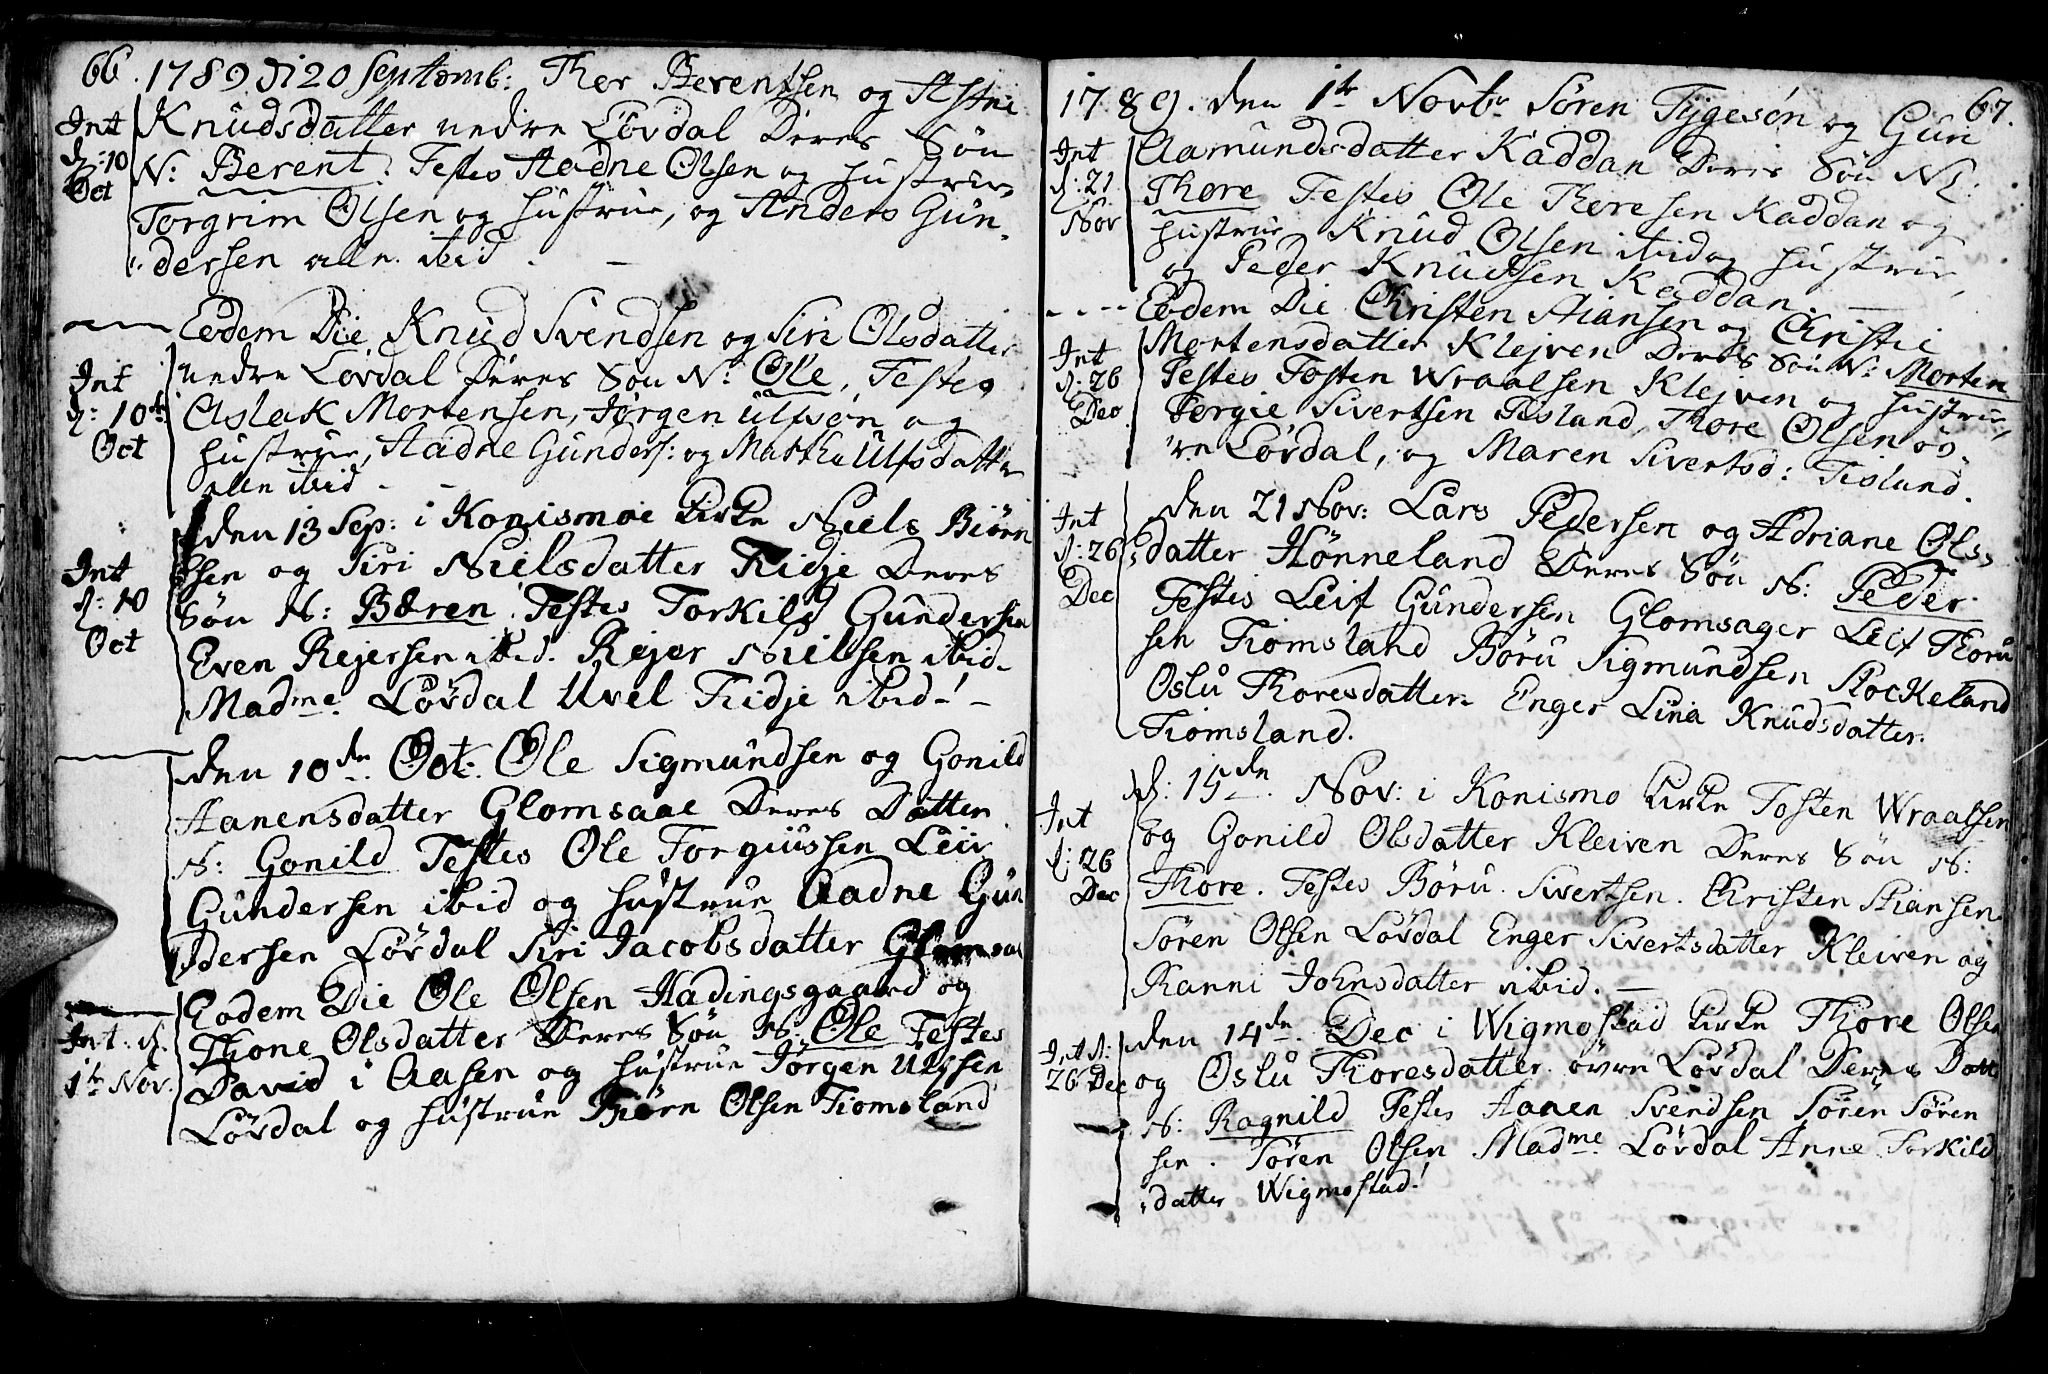 66. 1789 di 20 Septemb: Ther Berentsen og Astne
Int Knudsdatter nedre Lövdal Deres Sön
d: 10 N: Berent. Testes Aadne Olsen og hustrue,
Oct Torgrim Olsen og hustrue, og Anders Gun-
dersen alle ibid.
Eodem Die Knud Svendsen og Siri Olsdatter
Int nedre Lovdal Deres Sön N: Ole, Testes
d: 10de Aslak Mortensen, Jørgen Ulfsøn og
Oct hustrue, Aadne Gunders: og Martha Ulfsdatter
alle ibid
den 13 Sep: i Konismoe Kirke Niels Biørn
Int sen og Siri Nielsdatter Fidje Deres
d: 10 Sön N: Bæren. Testes Torkild Gundersen
Oct Even Rejersen ibid. Rejer Nielsen ibid.
Madme. Lövdal Uvel Fidje ibid.
den 10de Oct. Ole Sigmundsen og Gonild
Aanensdatter Glomsaae Deres Datter
N: Gonild Testes Ole Torgiussen Leiv
Gundersen ibid og hustrue Aadne Gun
dersen Lövdal Siri Jacobsdatter Glomsaa
Eodem Die Ole Olsen Hadingsgaard og
Int. d. Thone Olsdatter Deres Sön N: Ole Testes
1te Nov. David i Aasen og hustrue Jørgen Ulfsen
Lövdal og hustrue Biørn Olsen Fiomsland
1789. den 1te Novbr Sören Tygesøn og Gun 67.
Int Aamundsdatter Kaddan Deris Sön N:
d: 21 Thore Testes Ole Thoresen Kaddan og
Nov hustrue Knud Olsen ibid og hustrue,
og Peder Knudsen Kaddan.
Eodem Die Christen Stiansen og Christie
Int Mortensdatter Klejven Deres Sön N: Morten
d: 26 Testes Tosten Wraalsen Klejven og hustrue,
Dec Torgie Sivertsen Tisland, Thore Olsen øv-
re Lövdal, og Maren Sivertsd: Tisland.
den 21 Nov: Lars Pedersen og Adriane Ols-
Int datter Hönneland Deres Sön N: Peder.
d: 26 Testes Leif Gundersen Glomsager Leif Thoru
Dec sen Fiomsland Böru Sigmundsen Stockeland
Oslu Thoresdatter Enger Lina Knudsdatter
Fiomsland.
d: 15de Nov: i Konismo Kirke Tosten Wraalsen
Int og Gonild Olsdatter Kleiven Deres Sön N:
d: 26 Thore. Testes Böru Sivertsen. Christen Stiansen
Dec Sören Olsen Lövdal Enger Sivertsdatter Kleiven og
Ranni Johnsdatter ibid.
den 14de. Dec i Wigmostad Kirke Thore Olsen
Int d: og Oslu Thoresdatter övre Lövdal Deres Datt
26 Dec N: Ragnild Testes Aanen Svendsen Sören Sören
sen. Sören Olsen Madme Lövdal Anne Torkild
datter Wigmostad.